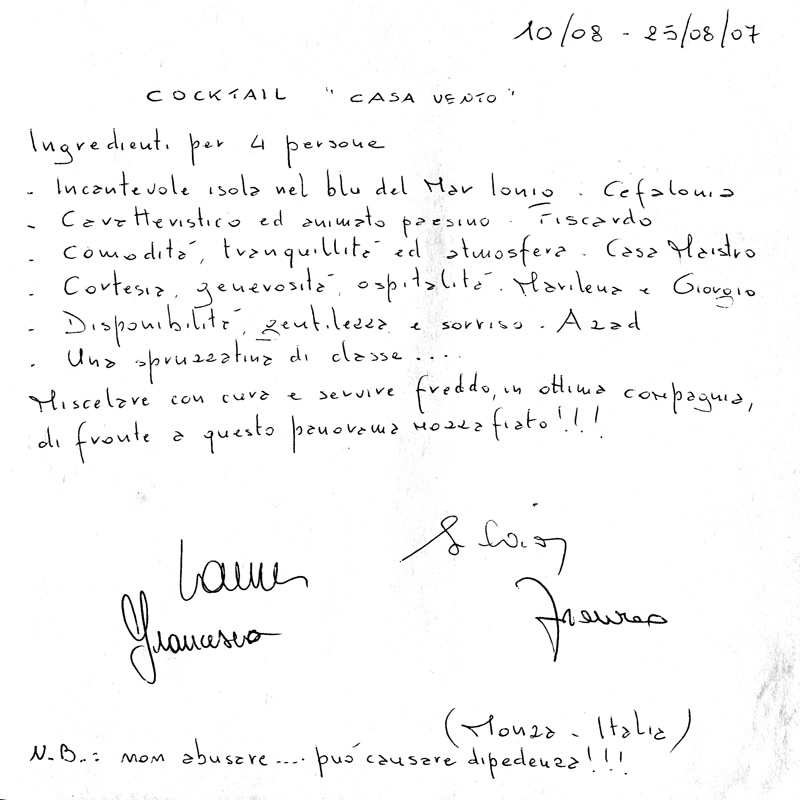 10/08 - 25/08/07
COCKTAIL "CASA VENTO"
Ingredienti per 4 persone
- Incantevole isola nel blu del Mar Ionio. Cefalonia
- Caratteristico ed animato paesino. Fiscardo
- Comodità, tranquillità ed atmosfera. Casa Maistro
- Cortesia, generosità, ospitalità. Marilena e Giorgio
- Disponibilità, gentilezza e sorriso. Azad
- Una spruzzatina di classe....
Miscelare con cura e servire freddo, in ottima compagnia,
di fronte a questo panorama mozzafiato!!!
Francesca
(Monza - Italia)
N.B.: non abusare.... può causare dipedenza!!!